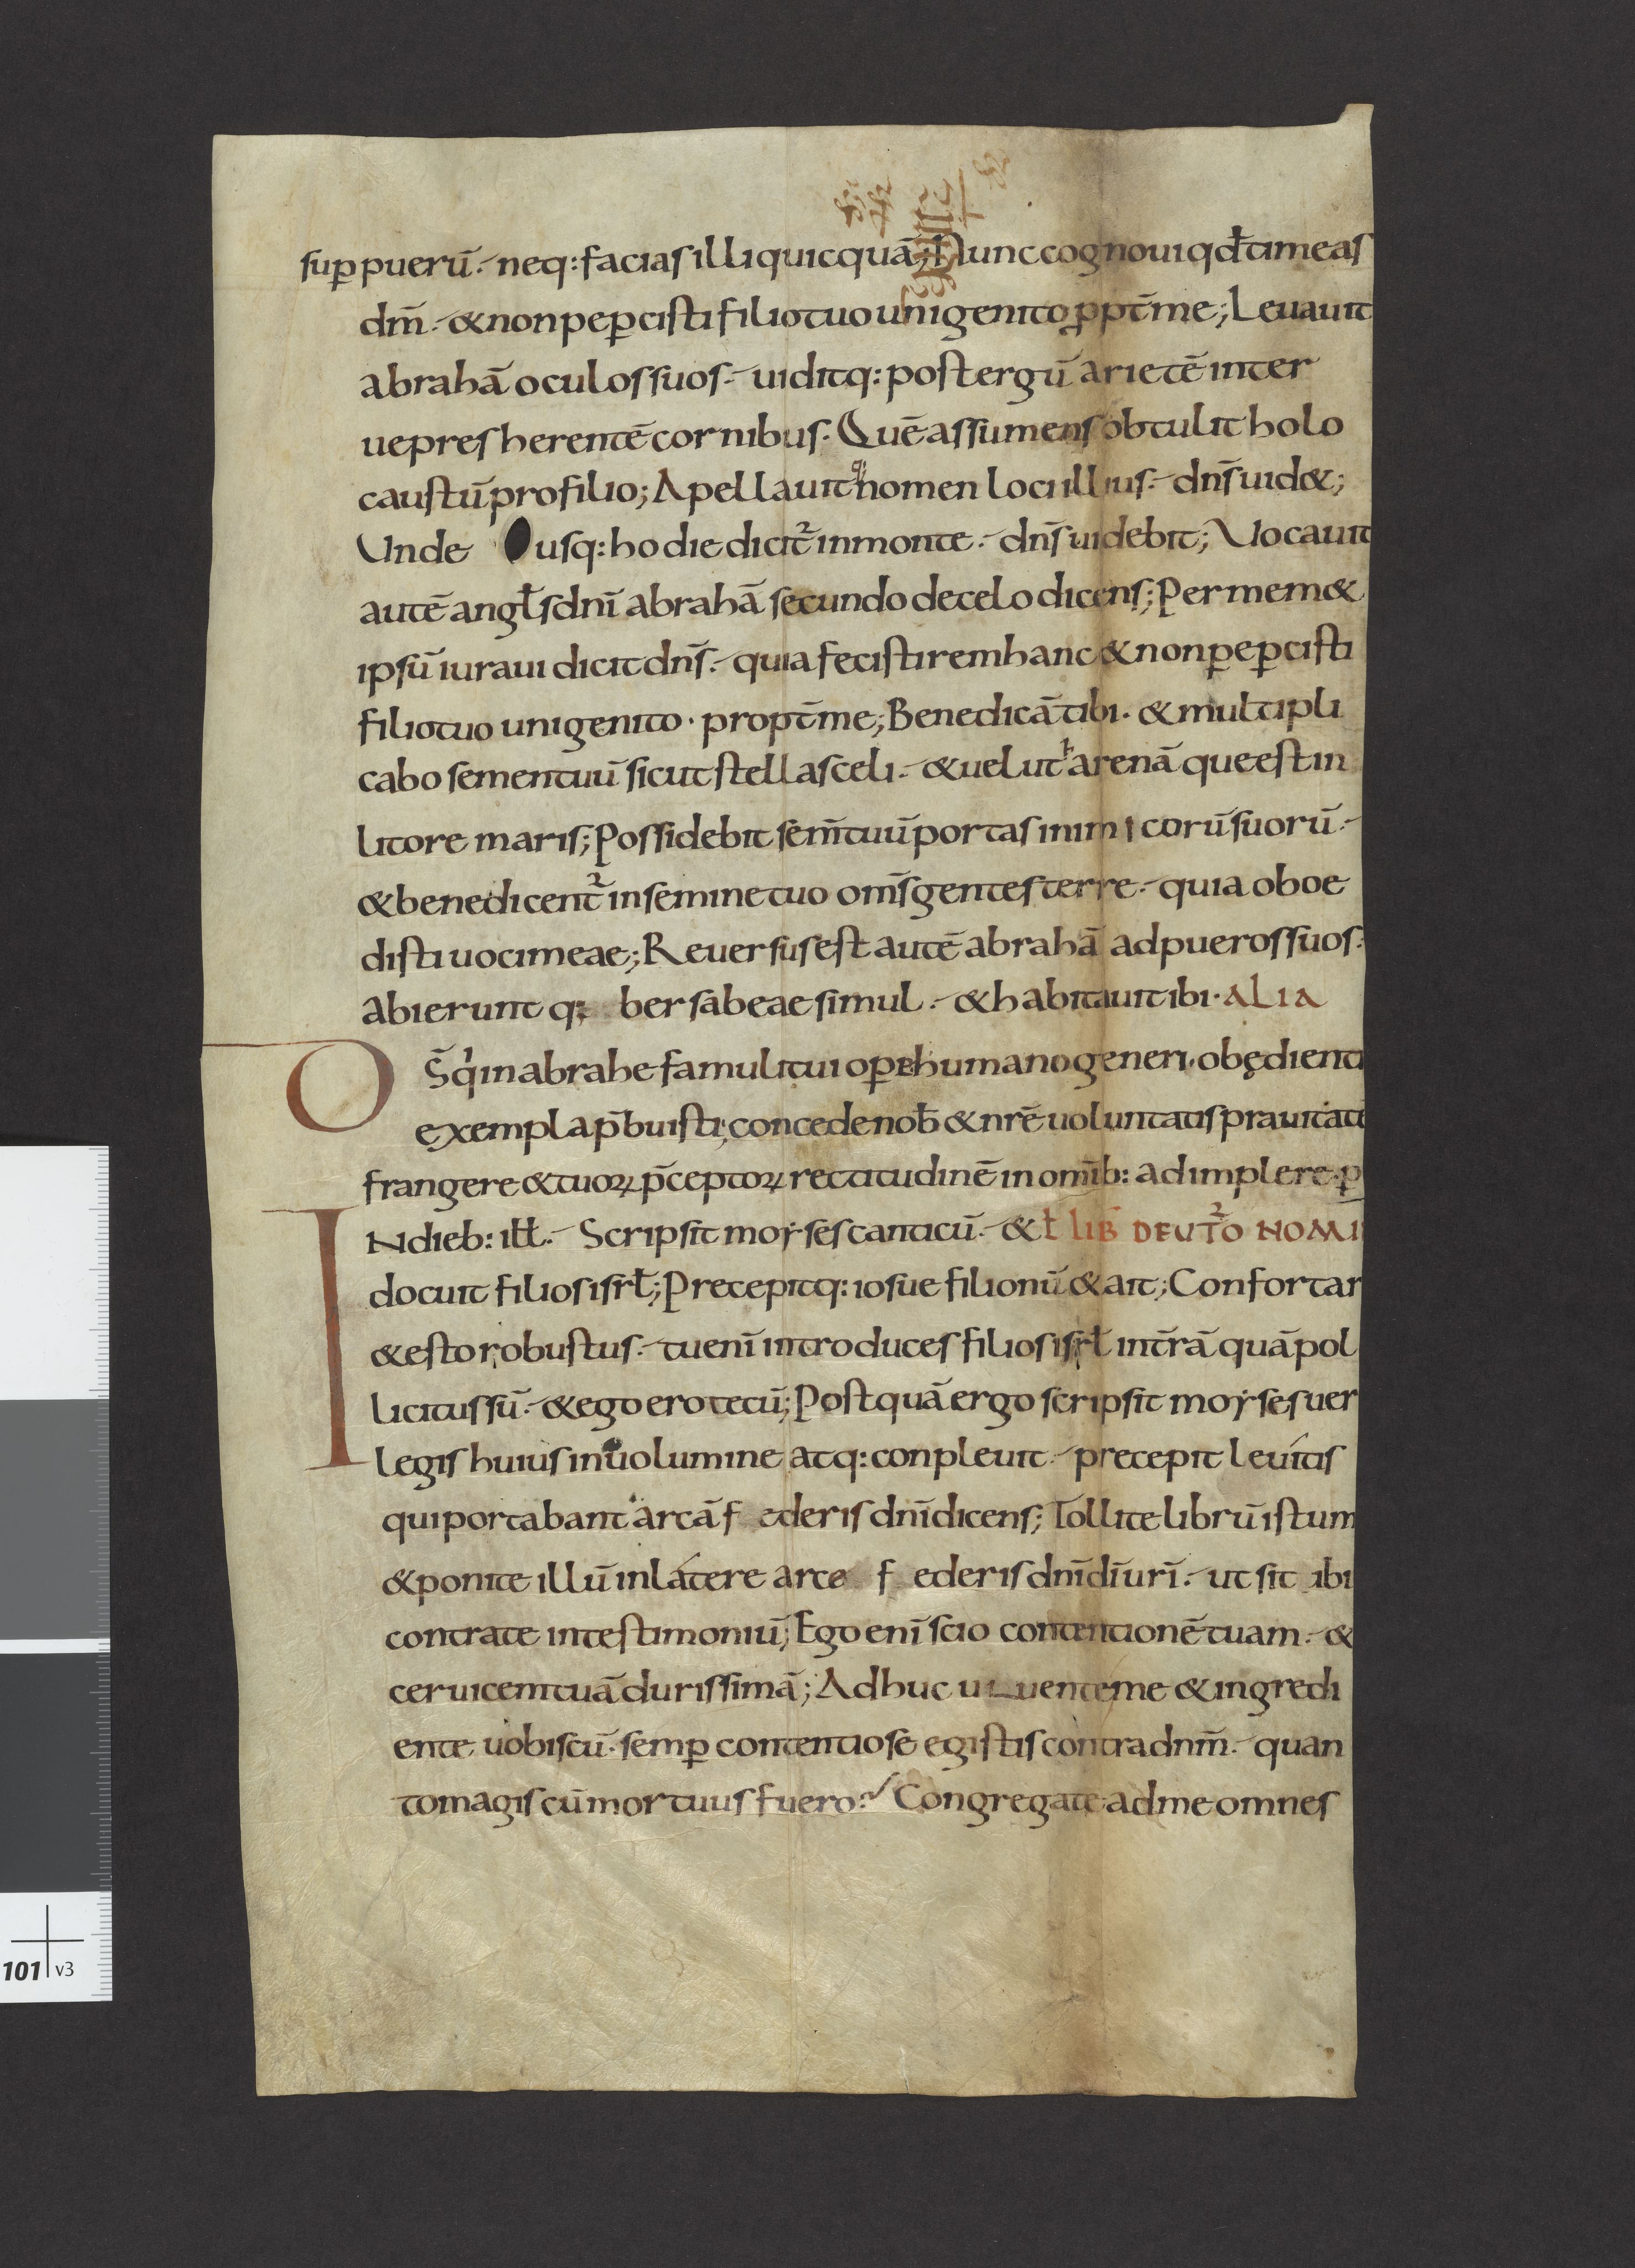 sup̱ puerū. neq: facias illi quicquā; Nunc cognoui qđ timeas
dm̄. & non pep̱cisti filio tuo unigenito p̱pt̄ me; Leuauit
abrahā oculos suos. uiditq: post ergū arietē inter
uepres herentē cornibus. Quē assumens obtulit holo
caustū pro filio; Apellauit q; nomen loci illius. dn̄s uid&;
Unde usq: hodie dicit̄ in monte. dn̄s uidebit; Uocauit
autē angl̄s dn̄i abrahā secundo de celo dicens; Per mem&
ipsū iuraui dicit dn̄s. quia fecisti rem hanc & non p̱ep̱cisti
filio tuo unigenito. propt̄ me; Benedicā tibi. & multipli
cabo sementuū sicut stellas celi. & uelut h arenā que est in
litore maris; Possidebit sem̄ tuū portas inimicorū suorū.
& benedicent̄ in semine tuo om̄s gentes terre. quia oboe
disti uoci meae; Reuersus est autē abrahā ad pueros suos.
abierunt q; bersabeae simul. & habitauit ibi. ALIA
Os̄ q̇ in abrahe famuli tui op̱e humano generi. obędienti
exempla p̄buisti; concede nob̄ & nr̄ē uoluntatis prauitatē
frangere & tuoꝝ p̄ceptoꝝ rectitudinē in om̄ib: adimplere. p̱
INdieb: ill̄. Scripsit moyses canticū. & t̄ LIB̄ DEUT̄O NOMI
docuit filios isrl̄; Precepitq: iosue filio nū & ait; Confortar
& esto robustus. tu enī introduces filios isrl̄ in t̄rā quā pol
licitus sū. & ego ero tecū; Postquā ergo scripsit moyses uer
legis huius in uolumine atq: conpleuit. precepit leuitis
qui portabant arcā f ederis dn̄i dicens; Tollite librū istum
& ponite illū in latere arce f ederis dn̄i dī urī. ut sit ibi
contra te in testimoniū; Ego enī scio contentionē tuam. &
ceruicem tuā durissimā; Adhuc uiuente me & ingredi
ente uobiscū. semp̱ contentiose egistis contra dnm̄. quan
to magis cū mortuus fuero? Congregate ad me omnes